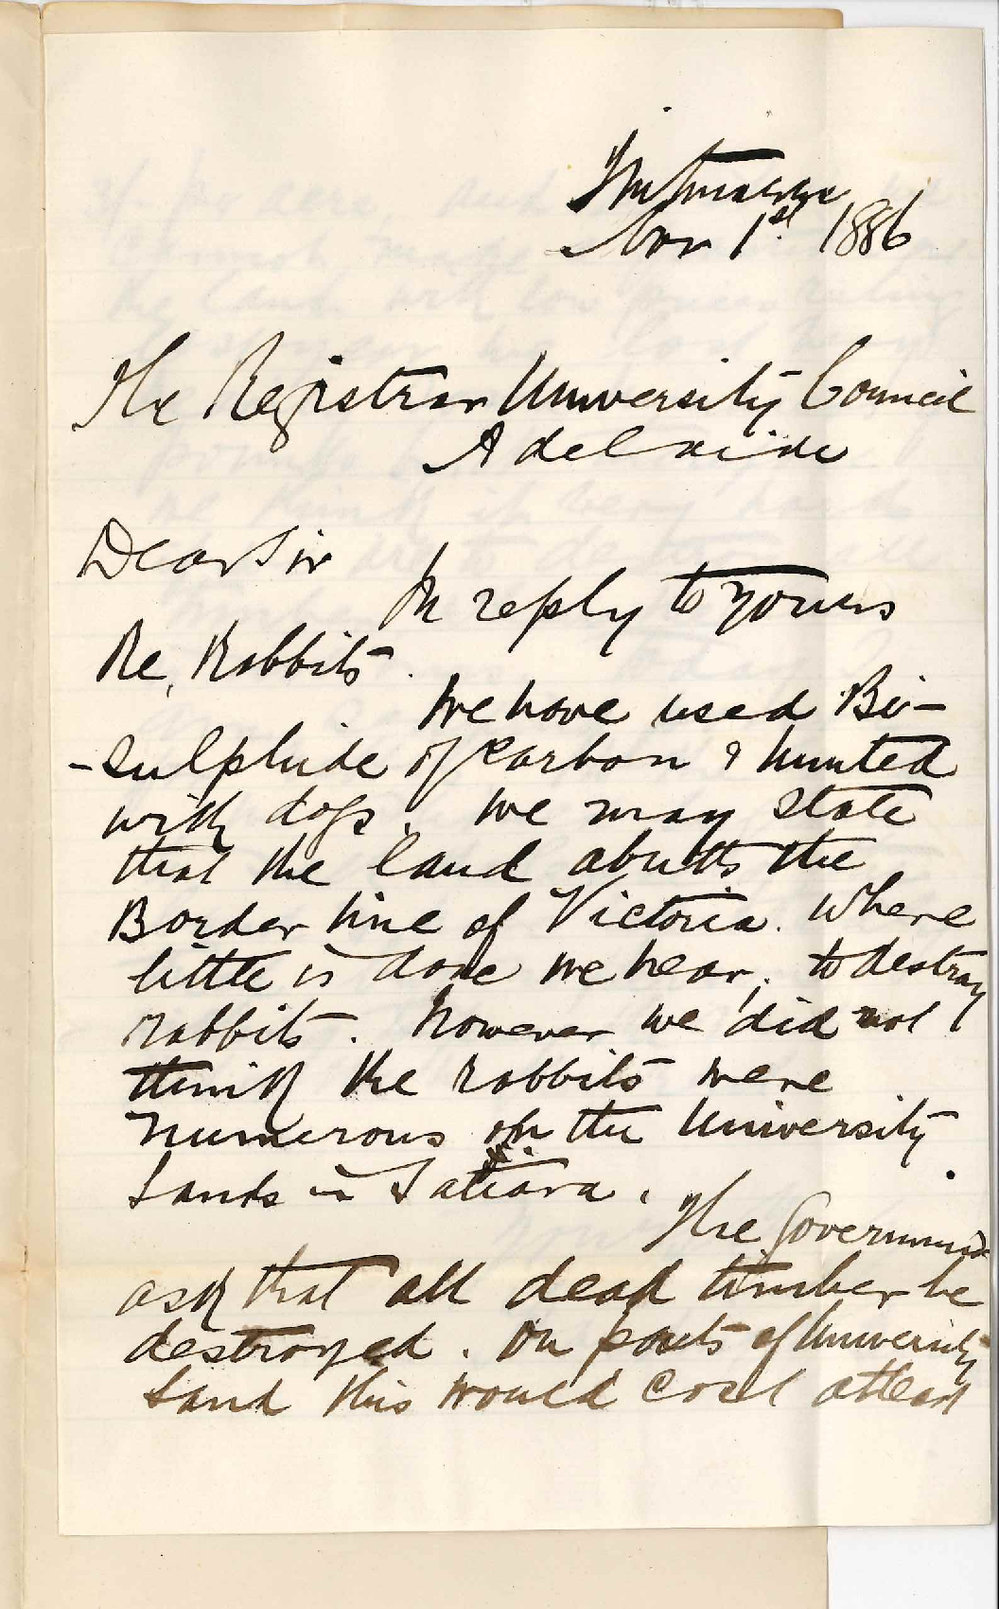 Nov 1st 1886
The Registrar University Council
Adelaide
Dear Sir
In reply to yours
Re, Rabbits.
We have used Bi-
-sulphide of Carbon & hunted
with dogs. We may state
that the land abutts the
Border line of Victoria. Where
little is done we hear, to destroy
rabbits. However we did not
think the rabbits were
numerous on the University
Lands in Tatiara.
The Government
ask that all dead timber be
destroyed. On parts of University
Land this would cost atleast